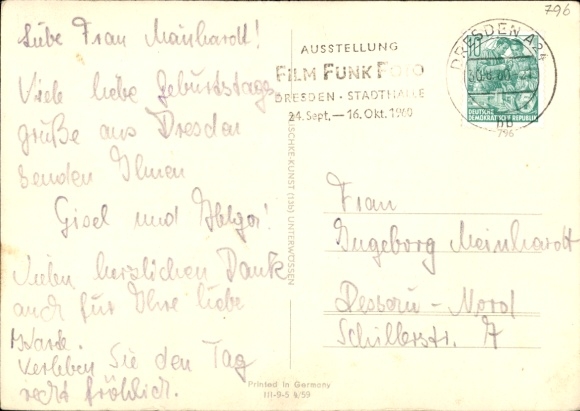 796
Liebe Frau Mainhardt!
Viele liebe Geburtstags
grüße aus Dresden
senden Ihnen
Gisel und Helga!
Vielen herzlichen Dank
auch für Ihre liebe
Karte.
Verleben Sie den Tag
recht fröhlich.
AUSSTELLUNG
FILM FUNK FOTO
DRESDEN - STADTHALLE
24. Sept. — 16. Okt. 1960
DRESDEN A 24
10
DEUTSCHE
DEMOKRATISCHE REPUBLIK
796
(136) UNTERWÖSSEN
Frau
Ingeborg Meinhardt
Dessau - Nord
Schillerstr. 7
Printed in Germany
III-9-5 4/59